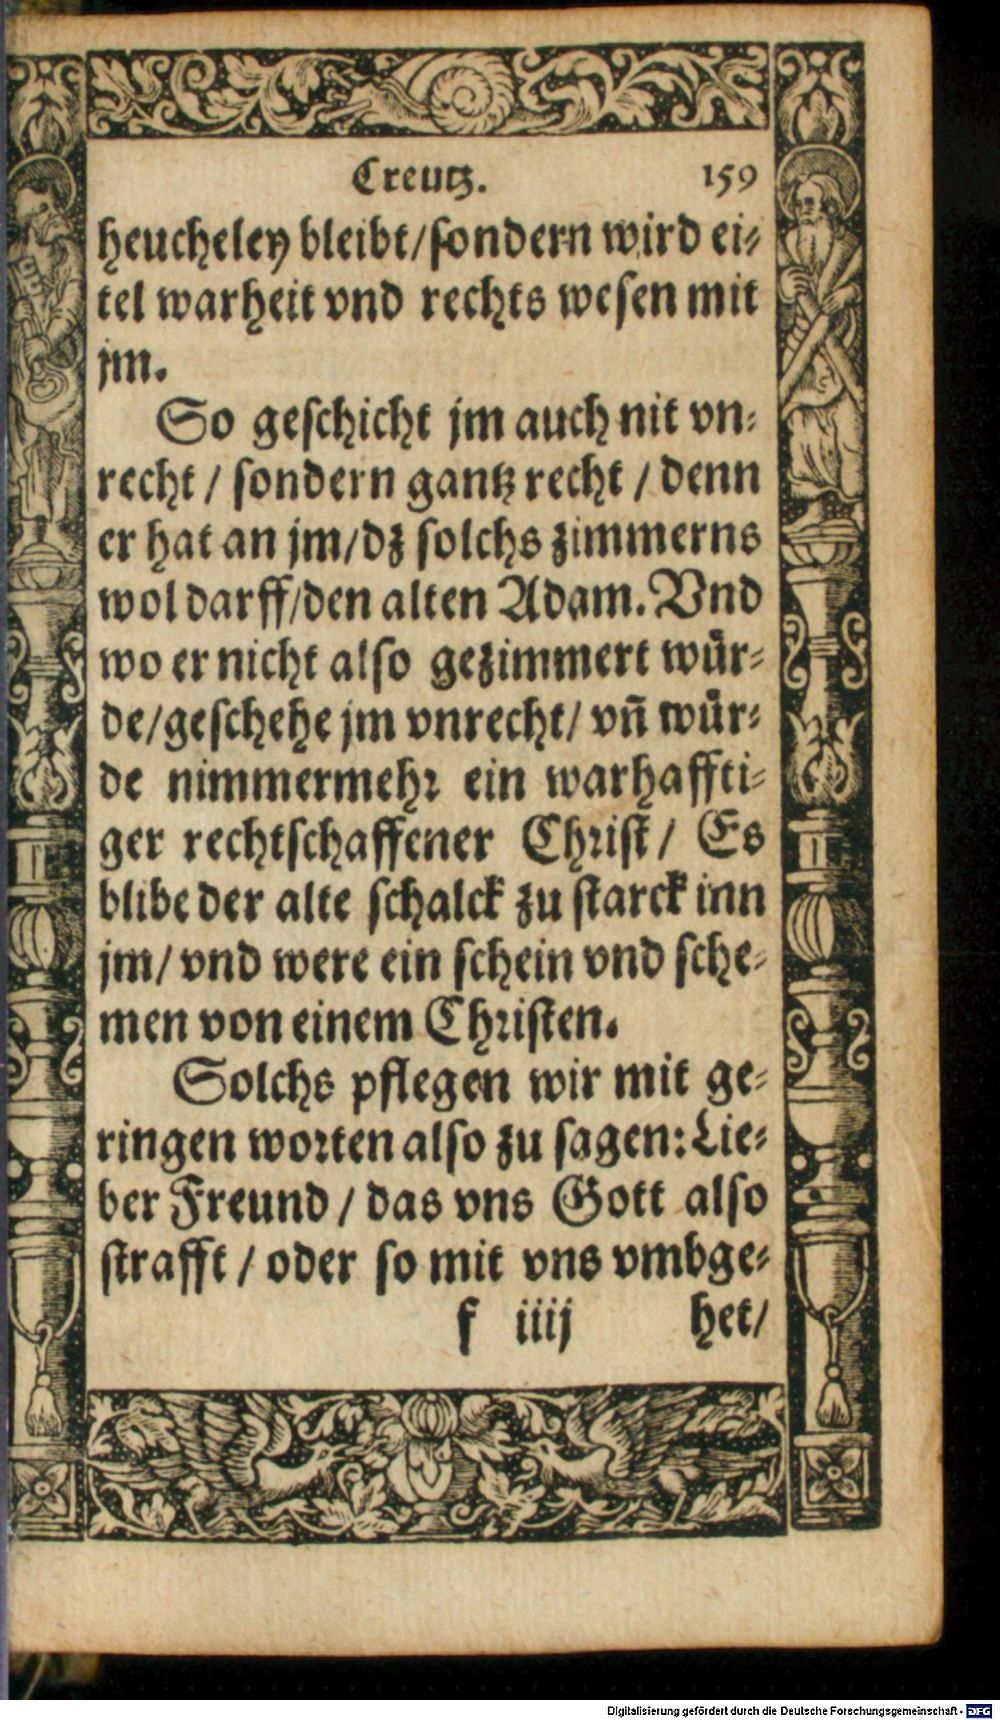 Creutz. 159
heucheley bleibt/sondern wird ei⸗
tel warheit vnd rechts wesen mit
jm.
So geschicht jm auch nit vn⸗
recht / sondern gantz recht / denn
er hat an jm/dz solchs zimmerns
wol darff/den alten Adam. Vnd
wo er nicht also gezimmert wuͤr⸗
de/geschehe jm vnrecht/ vn̄ wuͤr⸗
de nimmermehr ein warhaffti⸗
ger rechtschaffener Christ/ Es
blibe der alte schalck zu starck inn
jm/ vnd were ein schein vnd sche⸗
men von einem Christen.
Solchs pflegen wir mit ge⸗
ringen worten also zu sagen: Lie⸗
ber Freund / das vns Gott also
strafft / oder so mit vns vmbge⸗
f iiij het/
Digitalisierung gefördert durch die Deutsche Forschungsgemeinschaft - DFG